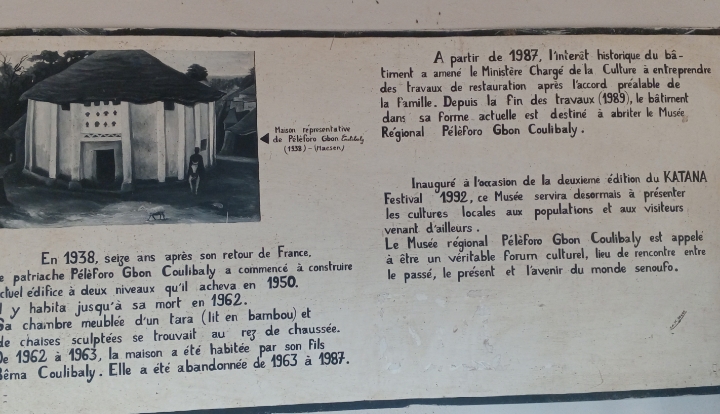 Maison représentative
de Pélèforo Gbon Coulibaly
(1938) - (Maesen)
En 1938, seize ans après son retour de France,
e patriache Pélèforo Gbon Coulibaly a commencé à construire
ctuel édifice à deux niveaux qu'il acheva en 1950.
l y habita jusqu'à sa mort en 1962.
Sa chambre meublée d'un tara (lit en bambou) et
de chaises sculptées se trouvait au rez de chaussée.
De 1962 à 1963, la maison a été habitée par son fils
Bêma Coulibaly. Elle a été abandonnée de 1963 à 1987.
A partir de 1987, l'interêt historique du bâ-
timent a amené le Ministère Chargé de la Culture à entreprendre
des travaux de restauration après l'accord préalable de
la famille. Depuis la fin des travaux (1989), le bâtiment
dans sa forme actuelle est destiné à abriter le Musée
Régional Pélèforo Gbon Coulibaly.
Inauguré à l'occasion de la deuxieme édition du KATANA
Festival 1992, ce Musée servira desormais à présenter
les cultures locales aux populations et aux visiteurs
venant d'ailleurs.
Le Musée régional Pélèforo Gbon Coulibaly est appelé
à être un véritable forum culturel, lieu de rencontre entre
le passé, le présent et l'avenir du monde senoufo.